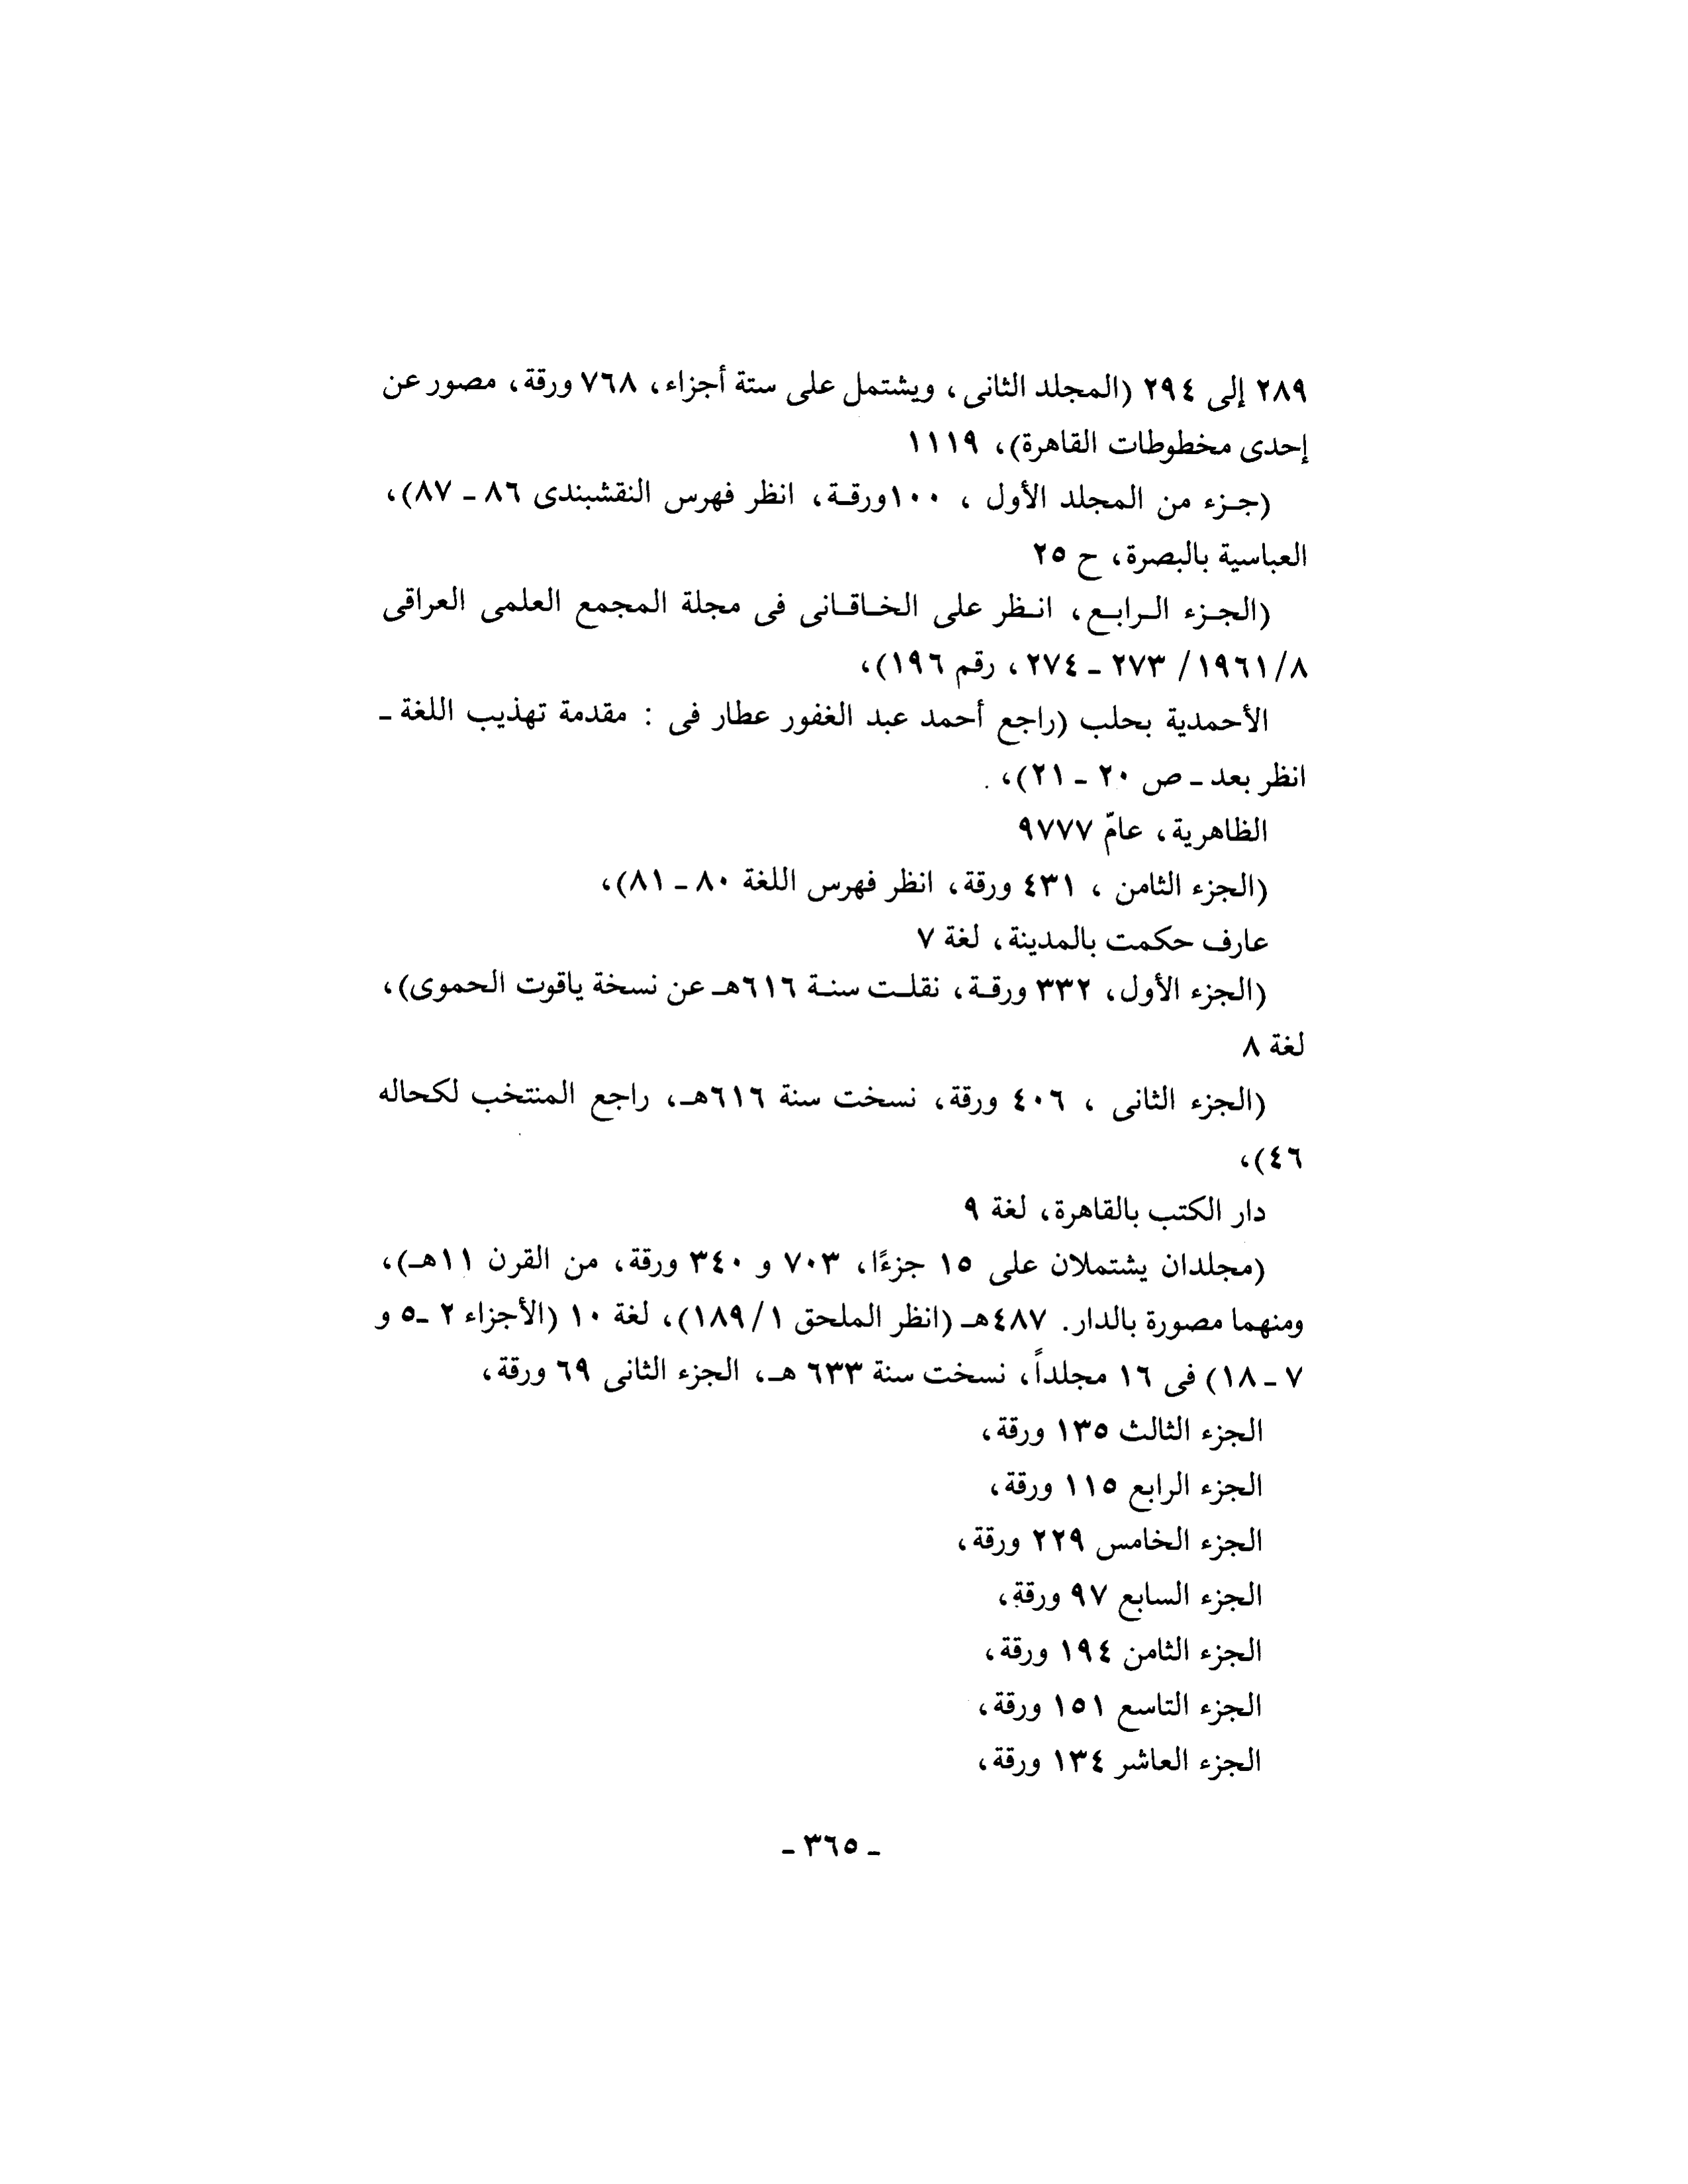 ٢٨٩ إلى ٢٩٤ (المجلد الثانى، ويشتمل على ستة أجزاء، ٧٦٨ ورقة، مصور عن
إحدى مخطوطات القاهرة)، ١١١٩
(جزء من المجلد الأول ، ١٠٠ورقة، انظر فهرس النقشبندى ٨٦ - ٨٧)،
العباسية بالبصرة، ح ٢٥
(الجزء الرابع، انظر على الخاقانى فى مجلة المجمع العلمى العراقى
٨/ ١٩٦١/ ٢٧٣ - ٢٧٤، رقم ١٩٦)،
الأحمدية بحلب (راجع أحمد عبد الغفور عطار فى : مقدمة تهذيب اللغة -
انظر بعد - ص ٢٠ - ٢١)،
الظاهرية، عامّ ٩٧٧٧
(الجزء الثامن ، ٤٣١ ورقة، انظر فهرس اللغة ٨٠ - ٨١)،
عارف حكمت بالمدينة، لغة ٧
(الجزء الأول، ٣٣٢ ورقة، نقلت سنة ٦١٦هـ عن نسخة ياقوت الحموى)،
لغة ٨
(الجزء الثانى ، ٤٠٦ ورقة، نسخت سنة ٦١٦هـ، راجع المنتخب لكحاله
٤٦)،
دار الكتب بالقاهرة، لغة ٩
(مجلدان يشتملان على ١٥ جزءًا، ٧٠٣ و ٣٤٠ ورقة، من القرن ١١هـ)،
ومنهما مصورة بالدار. ٤٨٧هـ (انظر الملحق ١/ ١٨٩)، لغة ١٠ (الأجزاء ٢ -٥ و
٧ - ١٨) فى ١٦ مجلداً، نسخت سنة ٦٣٣ هـ، الجزء الثانى ٦٩ ورقة،
الجزء الثالث ١٣٥ ورقة،
الجزء الرابع ١١٥ ورقة،
الجزء الخامس ٢٢٩ ورقة،
الجزء السابع ٩٧ ورقة،
الجزء الثامن ١٩٤ ورقة،
الجزء التاسع ١٥١ ورقة،
الجزء العاشر ١٣٤ ورقة،
- ٣٦٥ -